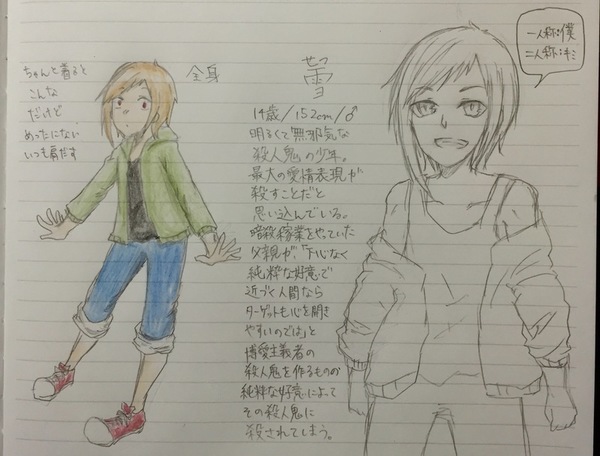 ちゃんと着ると
こんな
だけど
めったにない
いつも肩だす
全身
雪
一人称:僕
二人称:キミ
14歳/152cm/♂
明るくて無邪気な
殺人鬼の少年。
最大の愛情表現が
殺すことだと
思い込んでいる。
暗殺稼業をやっていた
父親が、「下心なく
純粋な好意で
近づく人間なら
ターゲットも心を開き
やすいのでは」と
博愛主義者の
殺人鬼を作るものの
純粋な好意によって
その殺人鬼に
殺されてしまう。